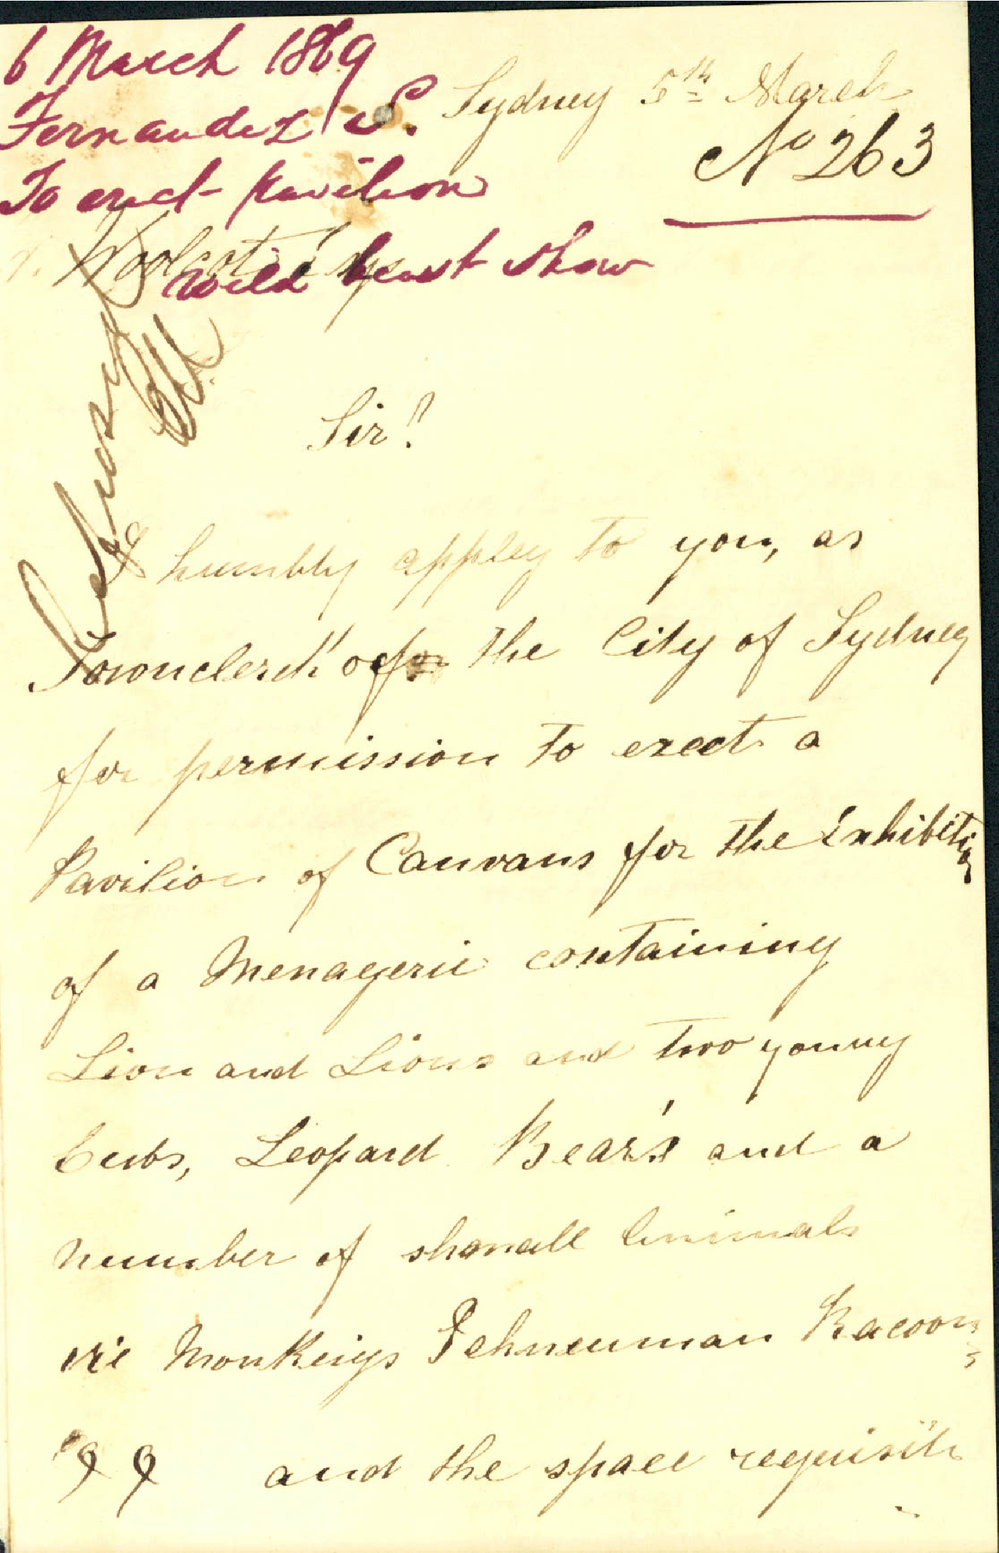 6 March 1869
Fernandez S.
To erect pavilion
wild beast show
Sydney 5th March
No 263
Woolcott Esq
Refused
Sir!
I humbly appley to you, as
Townclerck of the City of Sydney
for permission to erect a
Pavilion of Canvans for the Exhibition
of a Menagerie containing
Lion and Lions and two young
Cubs, Leopard Bear's and a
number of shmall Animals
vie Monkeiys Ichneuman Racoons
and the space requisite